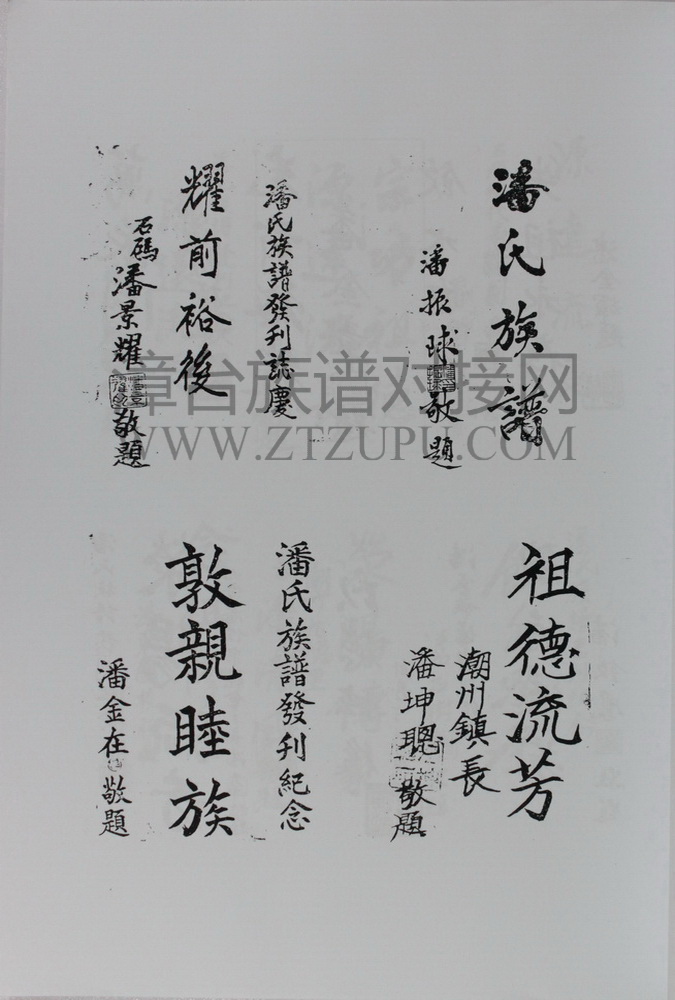 潘氏族譜
潘振球敬題
潘氏族譜發刊誌慶
耀前裕後
石碼
潘景耀敬題
祖德流芳
潮州鎮長
潘坤聰敬題
潘氏族譜發刊紀念
敦親睦族
潘金在敬題
漳台族谱对接网
WWW.ZTZUPU.COM